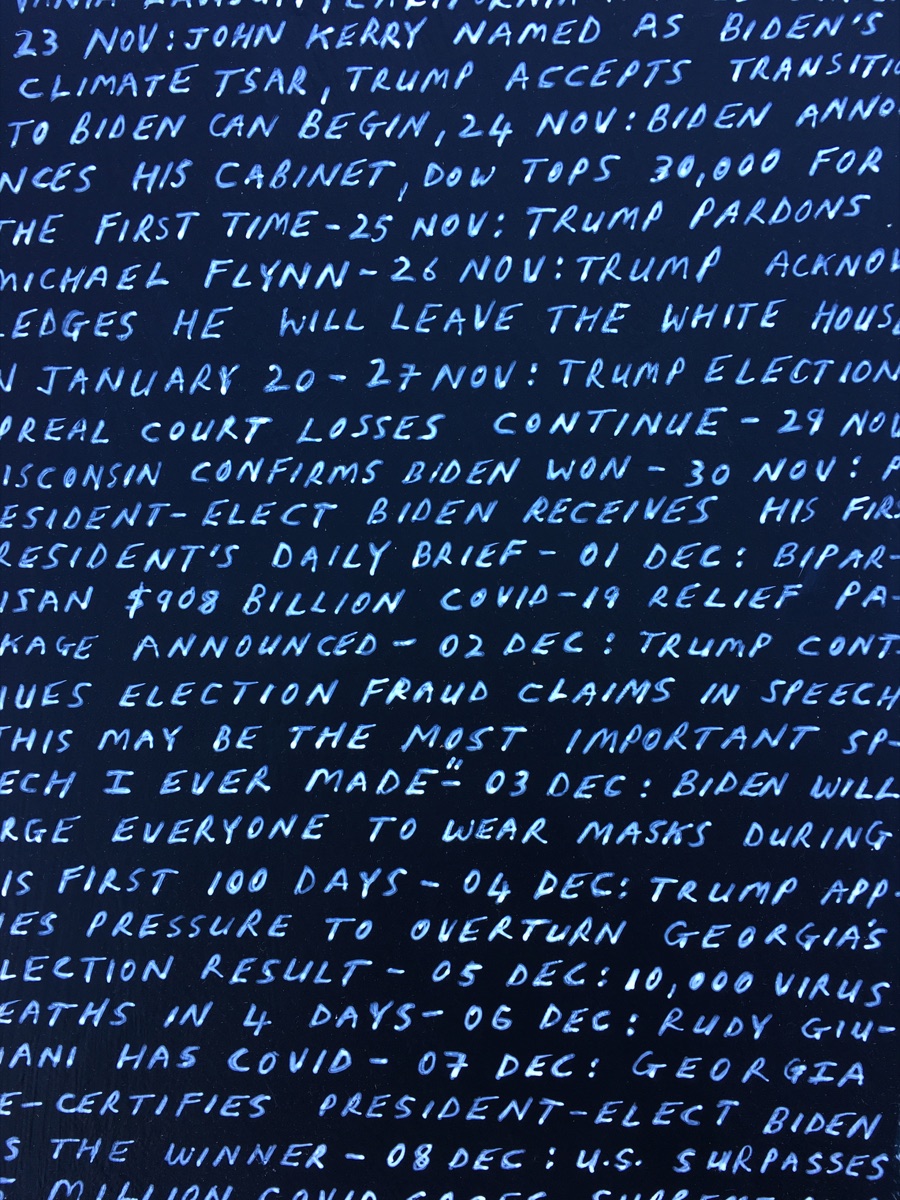 23 NOV: JOHN KERRY NAMED AS BIDEN'S
CLIMATE TSAR, TRUMP ACCEPTS TRANSITIO
TO BIDEN CAN BEGIN, 24 NOV: BIDEN ANNO
NCES HIS CABINET, DOW TOPS 30,000 FOR
THE FIRST TIME - 25 NOV: TRUMP PARDONS
MICHAEL FLYNN - 26 NOV: TRUMP ACKNOW
LEDGES HE WILL LEAVE THE WHITE HOUSE
N JANUARY 20 - 27 NOV: TRUMP ELECTION
PREAL COURT LOSSES CONTINUE - 29 NOV
ISCONSIN CONFIRMS BIDEN WON - 30 NOV: P
ESIDENT-ELECT BIDEN RECEIVES HIS FIRS
RESIDENT'S DAILY BRIEF - 01 DEC: BIPAR-
ISAN $908 BILLION COVID-19 RELIEF PA-
KAGE ANNOUNCED - 02 DEC: TRUMP CONT
NUES ELECTION FRAUD CLAIMS IN SPEECH
THIS MAY BE THE MOST IMPORTANT SP-
ECH I EVER MADE" - 03 DEC: BIDEN WILL
RGE EVERYONE TO WEAR MASKS DURING
IS FIRST 100 DAYS - 04 DEC: TRUMP APP-
IES PRESSURE TO OVERTURN GEORGIA'S
LECTION RESULT - 05 DEC: 10,000 VIRUS
EATHS IN 4 DAYS - 06 DEC: RUDY GIU-
IANI HAS COVID - 07 DEC: GEORGIA
E-CERTIFIES PRESIDENT-ELECT BIDEN
S THE WINNER - 08 DEC: U.S. SURPASSES
MILLION COVID CASES